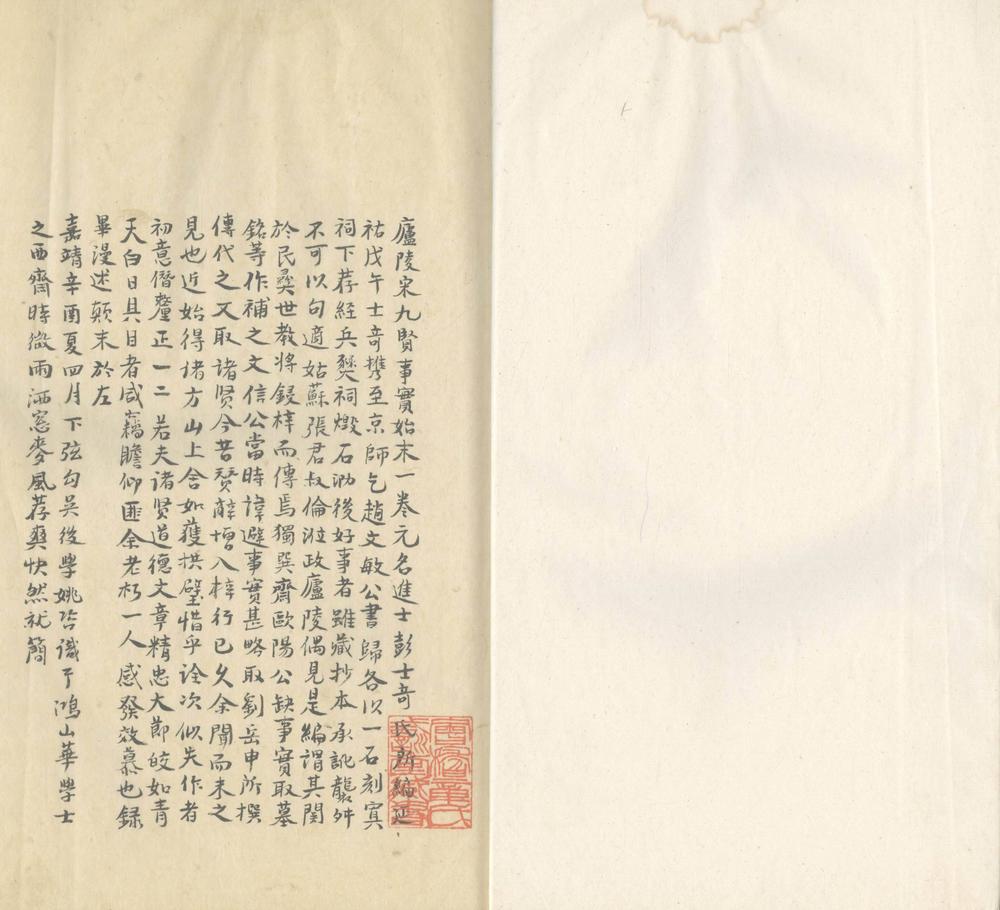 廬陵宋九賢事實始末一卷元名進士彭士奇氏所編延
祐戊午士奇攜至京師乞趙文敏公書歸各以一石刻寘
祠下荐経兵燹祠燬石泐後好事者雖藏抄本承訛襲舛
不可以句適姑蘇張君叔倫涖政廬陵偶見是編謂其関
於民彝世教将鋟梓而傳焉獨巽齋歐陽公缺事實取墓
銘等作補之文信公當時諱避事實甚略取劉岳申所撰
傳代之又取諸贤今昔賛辭增入梓行已久余聞而未之
見也近始得堵方山上舍如獲拱璧惜乎詮次似失作者
初意僭釐正一二若夫諸贤道德文章精忠大節皎如青
天白日具目者咸藉瞻仰匪余老朽一人感發效慕也録
畢漫述顛末於左
嘉靖辛酉夏四月下弦勾吳後學姚咨識于鴻山華學士
之西齋時微雨洒窓麥風荐爽快然就簡